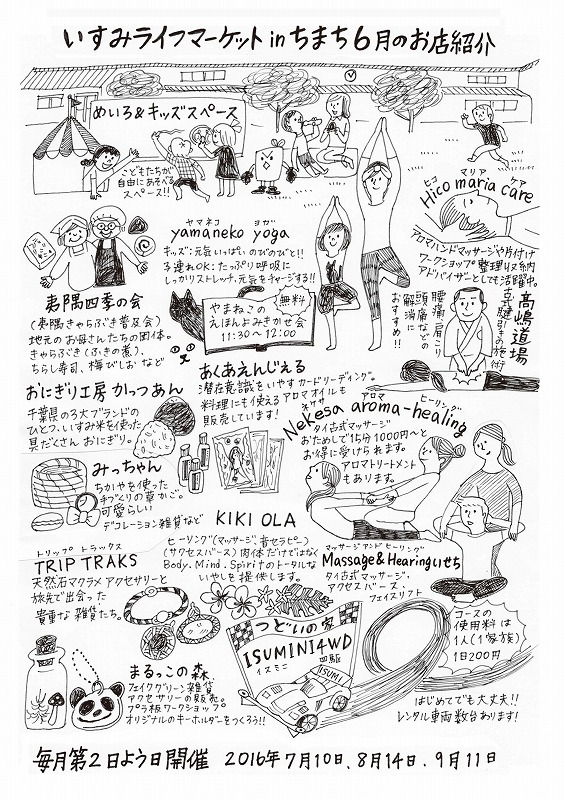 いすみライフマーケット in ちまち 6月のお店紹介
めいろ&キッズスペース
こどもたちが
自由にあそべる
スペース!!
ヒコ マリア ケア
Hico maria care
アロマハンドマッサージや片付け
ワークショップ。整理収納
アドバイザーとしても活躍中。
ヤマネコ ヨガ
yamaneko yoga
キッズ:元気いっぱいのびのびと!!
子連れOK:たっぷり呼吸に
しっかりストレッチ、元気をチャージする!!
無料
やまねこの
えほんよみきかせ会
11:30〜12:00
夷隅四季の会
(夷隅きゃらぶき普及会)
地元のお母さんたちの団体。
きゃらぶき(ふきの煮)、
ちらし寿司、梅びしお など
高嶋道場
古式腱引きの施術
腰痛、肩こり
頭痛などの
解消に
おすすめ!!
おにぎり工房 かっつあん
千葉県の3大ブランドの
ひとつ、いすみ米を使った
具だくさん おにぎり。
あくあえんじぇる
潜在意識をいやす カードリーディング。
料理にも使える アロマオイルも
販売しています!
ネヴサ アロマ ヒーリング
Nevesa aroma-healing
タイ古式マッサージ
おためしで15分1000円〜と
お得に受けられます。
アロマトリートメント
もあります。
みっちゃん
ちがやを使った
手づくりの草かご。
可愛らしい
デコレーション雑貨など
KIKI OLA
ヒーリング(マッサージ、音セラピー)
(サクセスバース) 肉体だけではなく
Body.Mind.Spiritのトータルな
いやしを提供します。
トリップ トラックス
TRIP TRAKS
天然石マクラメ アクセサリーと
旅先で出会った
貴重な 雑貨たち。
マッサージ アンド ヒーリング
Massage&Hearing いせち
タイ古式マッサージ、
アクセスバース、
フェイスリフト
つどいの家
ISUMINI4WD
イスミニ 四駆
ISUMI
コースの
使用料は
1人(1家族)
1日200円
はじめてでも大丈夫!!
レンタル車両数台あります!
まるっこの森
フェイクグリーン雑貨
アクセサリーの販売。
プラ板ワークショップ。
オリジナルのキーホルダーをつくろう!!
毎月第2日よう日開催 2016年7月10日、8月14日、9月11日